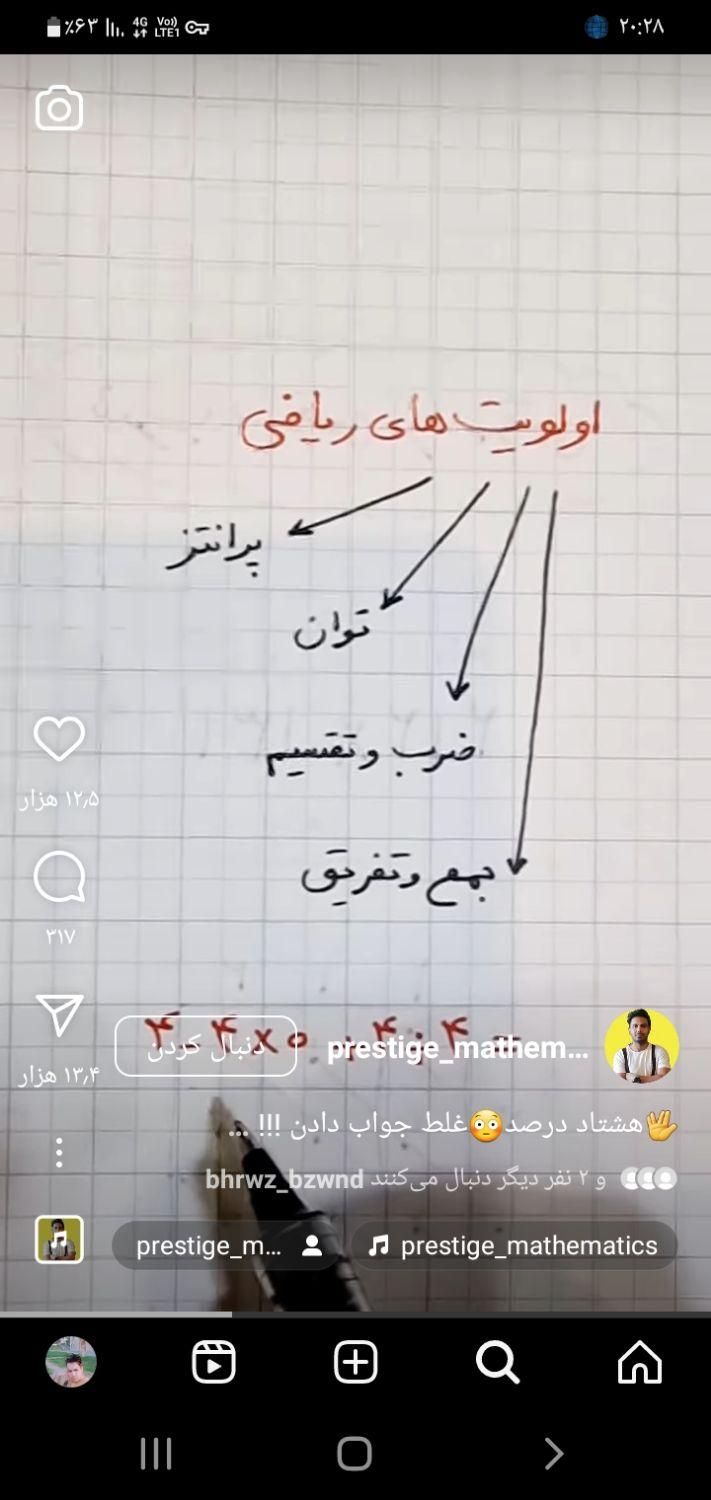 ۲۰:۲۸
٪۶۳ 4G Vo) LTE1
اولویت های ریاضی
پرانتز
توان
ضرب و تقسیم
جمع و تفریق
۱۲٫۵ هزار
۳۱۷
۱۳٫۴ هزار
prestige_mathem...
دنبال کردن
هشتاد درصد😳غلط جواب دادن !!! ...
bhrwz_bzwnd و ۲ نفر دیگر دنبال می‌کنند
prestige_mathematics
prestige_m...